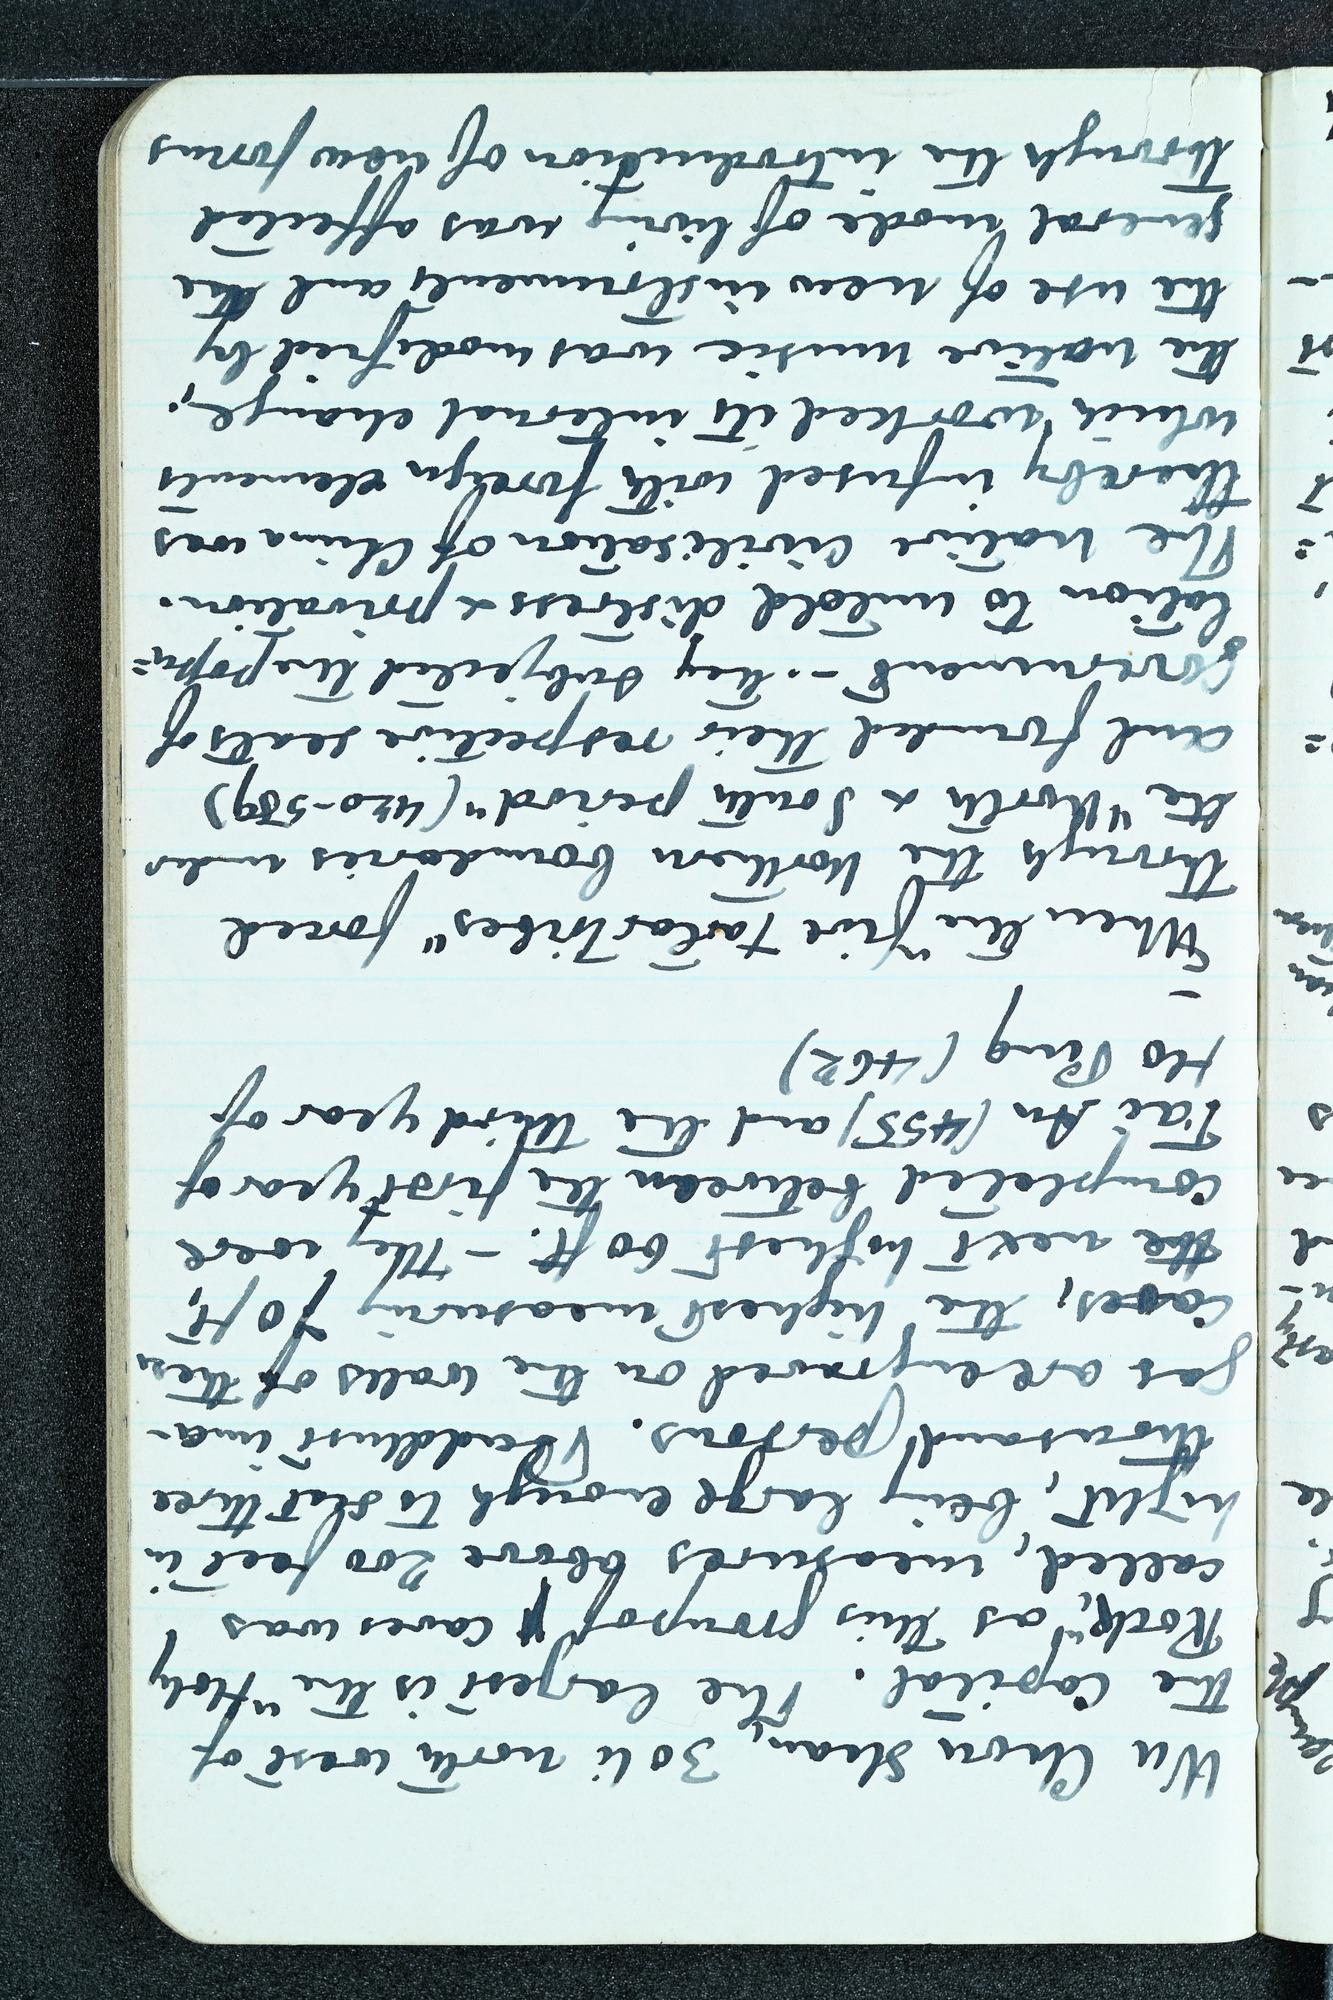 Wu Chou Shan, 30 li north west of
the Capital. The largest is the "Holy
Rock," as this group of caves was
called, measures above 200 feet in
hight, being large enough to seat three
thousand persons. Buddhist ima-
ges are engraved on the walls of these
caves, the highest measuring 70 ft,
the next highest 60 ft. – They were
completed between the first year of
Tai An (455) and the third year of
Ho Ping (462)
–
When the "five Tartar Tribes" forced
through the northern boundaries under
the "North & South period" (420-589)
and founded their respective seats of
Government – they subjected the popu=
lation to untold distress & privation.
The native civilisation of China was
thereby infused with foreign elements
which worked its internal change;
the native music was modified by
the use of new instruments and the
general mode of living was affected
through the introduction of new forms